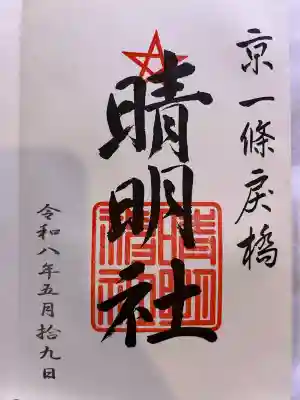 京一條戻橋
晴明社
令和八年五月拾九日